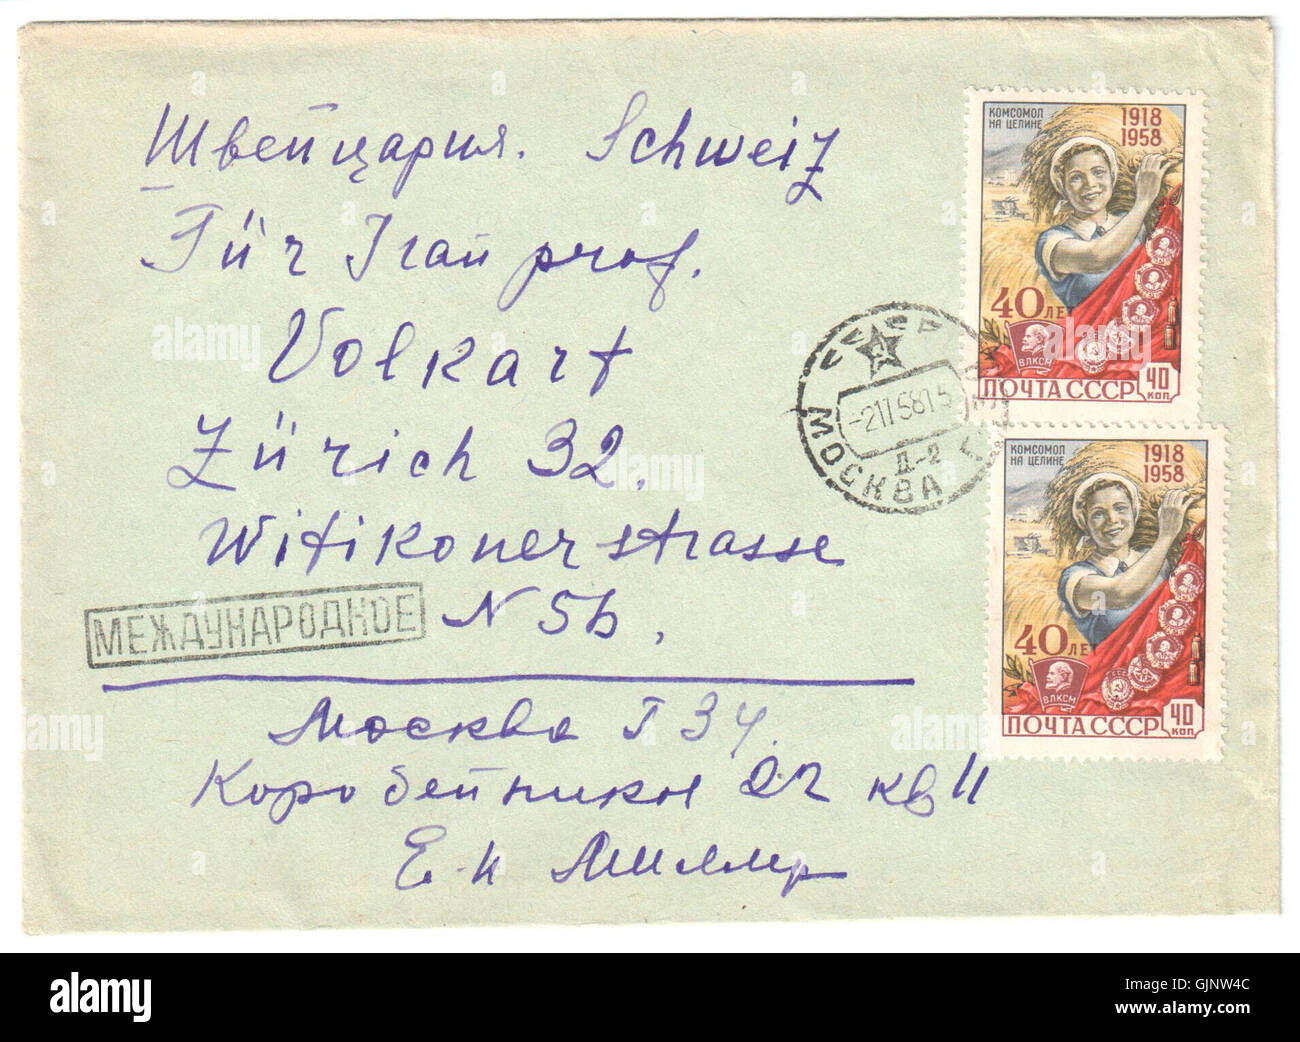 Швейцария. Schweiz
Für Frau prof.
Volkart
Zürich 32.
Witikonerstrasse
N 5b.
МЕЖДУНАРОДНОЕ
Москва Г 34.
Коробейников 22 кв 11
Е. К Миллер
КОМСОМОЛ
НА ЦЕЛИНЕ
1918
1958
40 ЛЕТ
ВЛКСМ
ПОЧТА СССР 40 КОП
СССР
-2115815
Д-2
МОСКВА
КОМСОМОЛ
НА ЦЕЛИНЕ
1918
1958
40 ЛЕТ
ВЛКСМ
ПОЧТА СССР 40 КОП
alamy
Image ID: GJNW4C
www.alamy.com